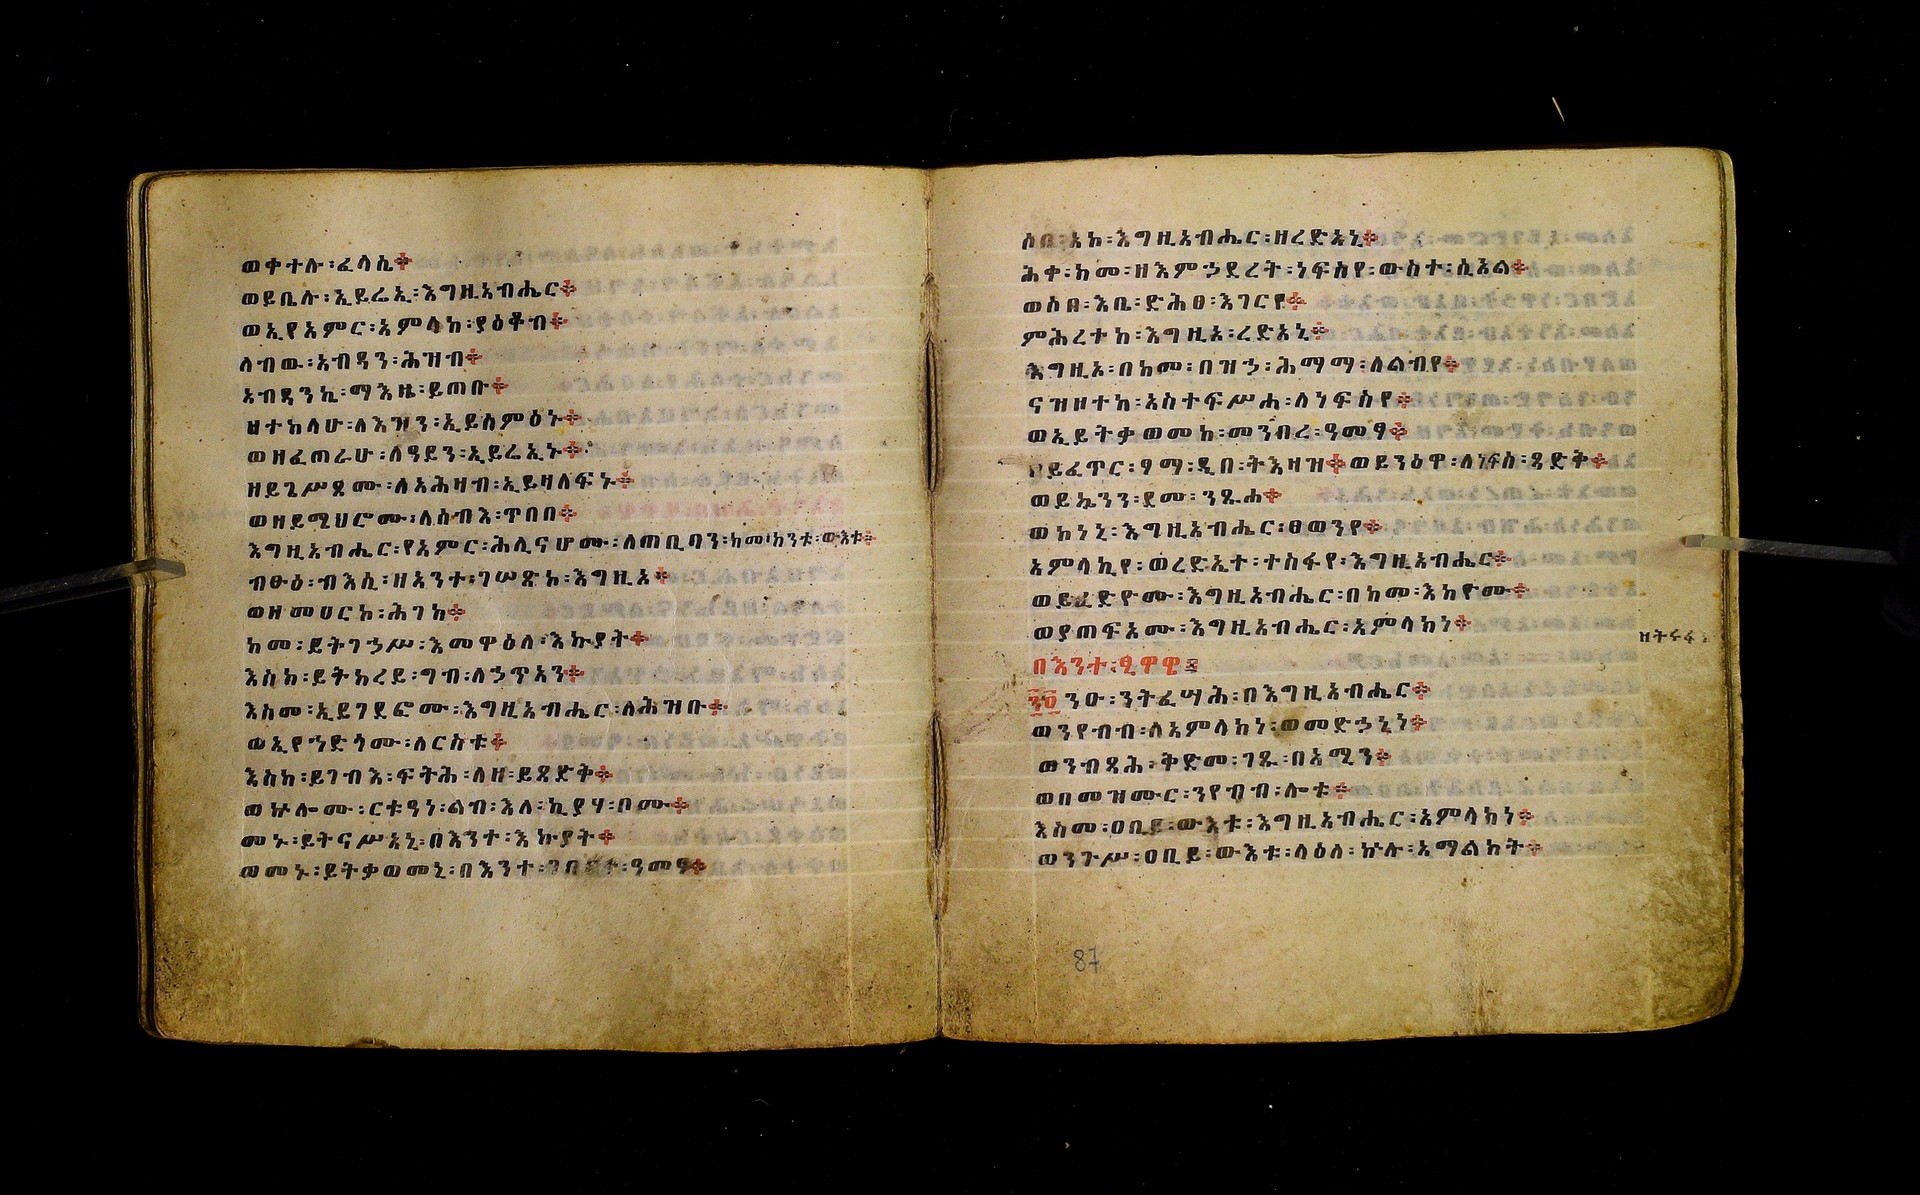 ወቀተሉ፡ፈላሲ፨
ወይቤሉ፡ኢይሬኢ፡እግዚአብሔር፨
ወኢየአምር፡አምላከ፡ያዕቆብ፨
ለብዉ፡አብዳን፡ሕዝብ፨
አብዳንኪ፡ማእዜ፡ይጠቡ፨
ዘተከላሁ፡ለእዝን፡ኢይሰምዕኑ፨
ወዘፈጠራሁ፡ለዓይን፡ኢይሬኢኑ፨
ዘይጌሥጾሙ፡ለአሕዛብ፡ኢይዛለፍኑ፨
ወዘይሜህሮሙ፡ለሰብእ፡ጥበበ፨
እግዚአብሔር፡የአምር፡ሕሊናሆሙ፡ለጠቢባን፡ከመ፡ከንቱ፡ውእቱ፨
ብፁዕ፡ብእሲ፡ዘአንተ፡ገሠጽከ፡እግዚአ፨
ወዘመሀርኮ፡ሕገከ፨
ከመ፡ይትገኃሥ፡እመዋዕለ፡እኩያት፨
እስከ፡ይትከረይ፡ግብ፡ለኃጥአን፨
እስመ፡ኢይገድፎሙ፡እግዚአብሔር፡ለሕዝቡ፨
ወኢየኀድጎሙ፡ለርስቱ፨
እስከ፡ይገብእ፡ፍትሕ፡ለዘ፡ይጸድቅ፨
ወኵሎሙ፡ርቱዓነ፡ልብ፡እለ፡ኪያሃ፡ቦሙ፨
መኑ፡ይትናሥአኒ፡በእንተ፡እኩያት፨
ወመኑ፡ይትቃወመኒ፡በእንተ፡ገበርተ፡ዓመፃ፨
ሶበ፡አኮ፡እግዚአብሔር፡ዘረድአኒ፨
ሕቀ፡ከመ፡ዘእምኃደረት፡ነፍስየ፡ውስተ፡ሲኦል፨
ወሶበ፡እቤ፡ድሕፀ፡እገርየ፨
ምሕረተከ፡እግዚኦ፡ረድአኒ፨
እግዚኦ፡በከመ፡በዝኃ፡ሕማማ፡ለልብየ፨
ናዝዞትከ፡አስተፍሥሐ፡ለነፍስየ፨
ወኢይትቃወመከ፡መንብረ፡ዓመፃ፨
ዘይፈጥር፡ፃማ፡ዲበ፡ትእዛዝ፨ወይንዕዋ፡ለነፍሰ፡ጻድቅ፨
ወይኴንን፡ደመ፡ንጹሐ፨
ወኮነኒ፡እግዚአብሔር፡ፀወንየ፨
አምላኪየ፡ወረድኤተ፡ተስፋየ፡እግዚአብሔር፨
ወይፈድዮሙ፡እግዚአብሔር፡በከመ፡እከዮሙ፨
ወያጠፍኦሙ፡እግዚአብሔር፡አምላክነ፨
በእንተ፡ፂዋዌ፨
፺፬ ንዑ፡ንትፈሣሕ፡በእግዚአብሔር፨
ወንየብብ፡ለአምላክነ፡ወመድኃኒነ፨
ወንብጻሕ፡ቅድመ፡ገጹ፡በአሚን፨
ወበመዝሙር፡ንየብብ፡ሎቱ፨
እስመ፡ዐቢይ፡ውእቱ፡እግዚአብሔር፡አምላክነ፨
ወንጉሥ፡ዐቢይ፡ውእቱ፡ላዕለ፡ኵሉ፡አማልክት፨
87